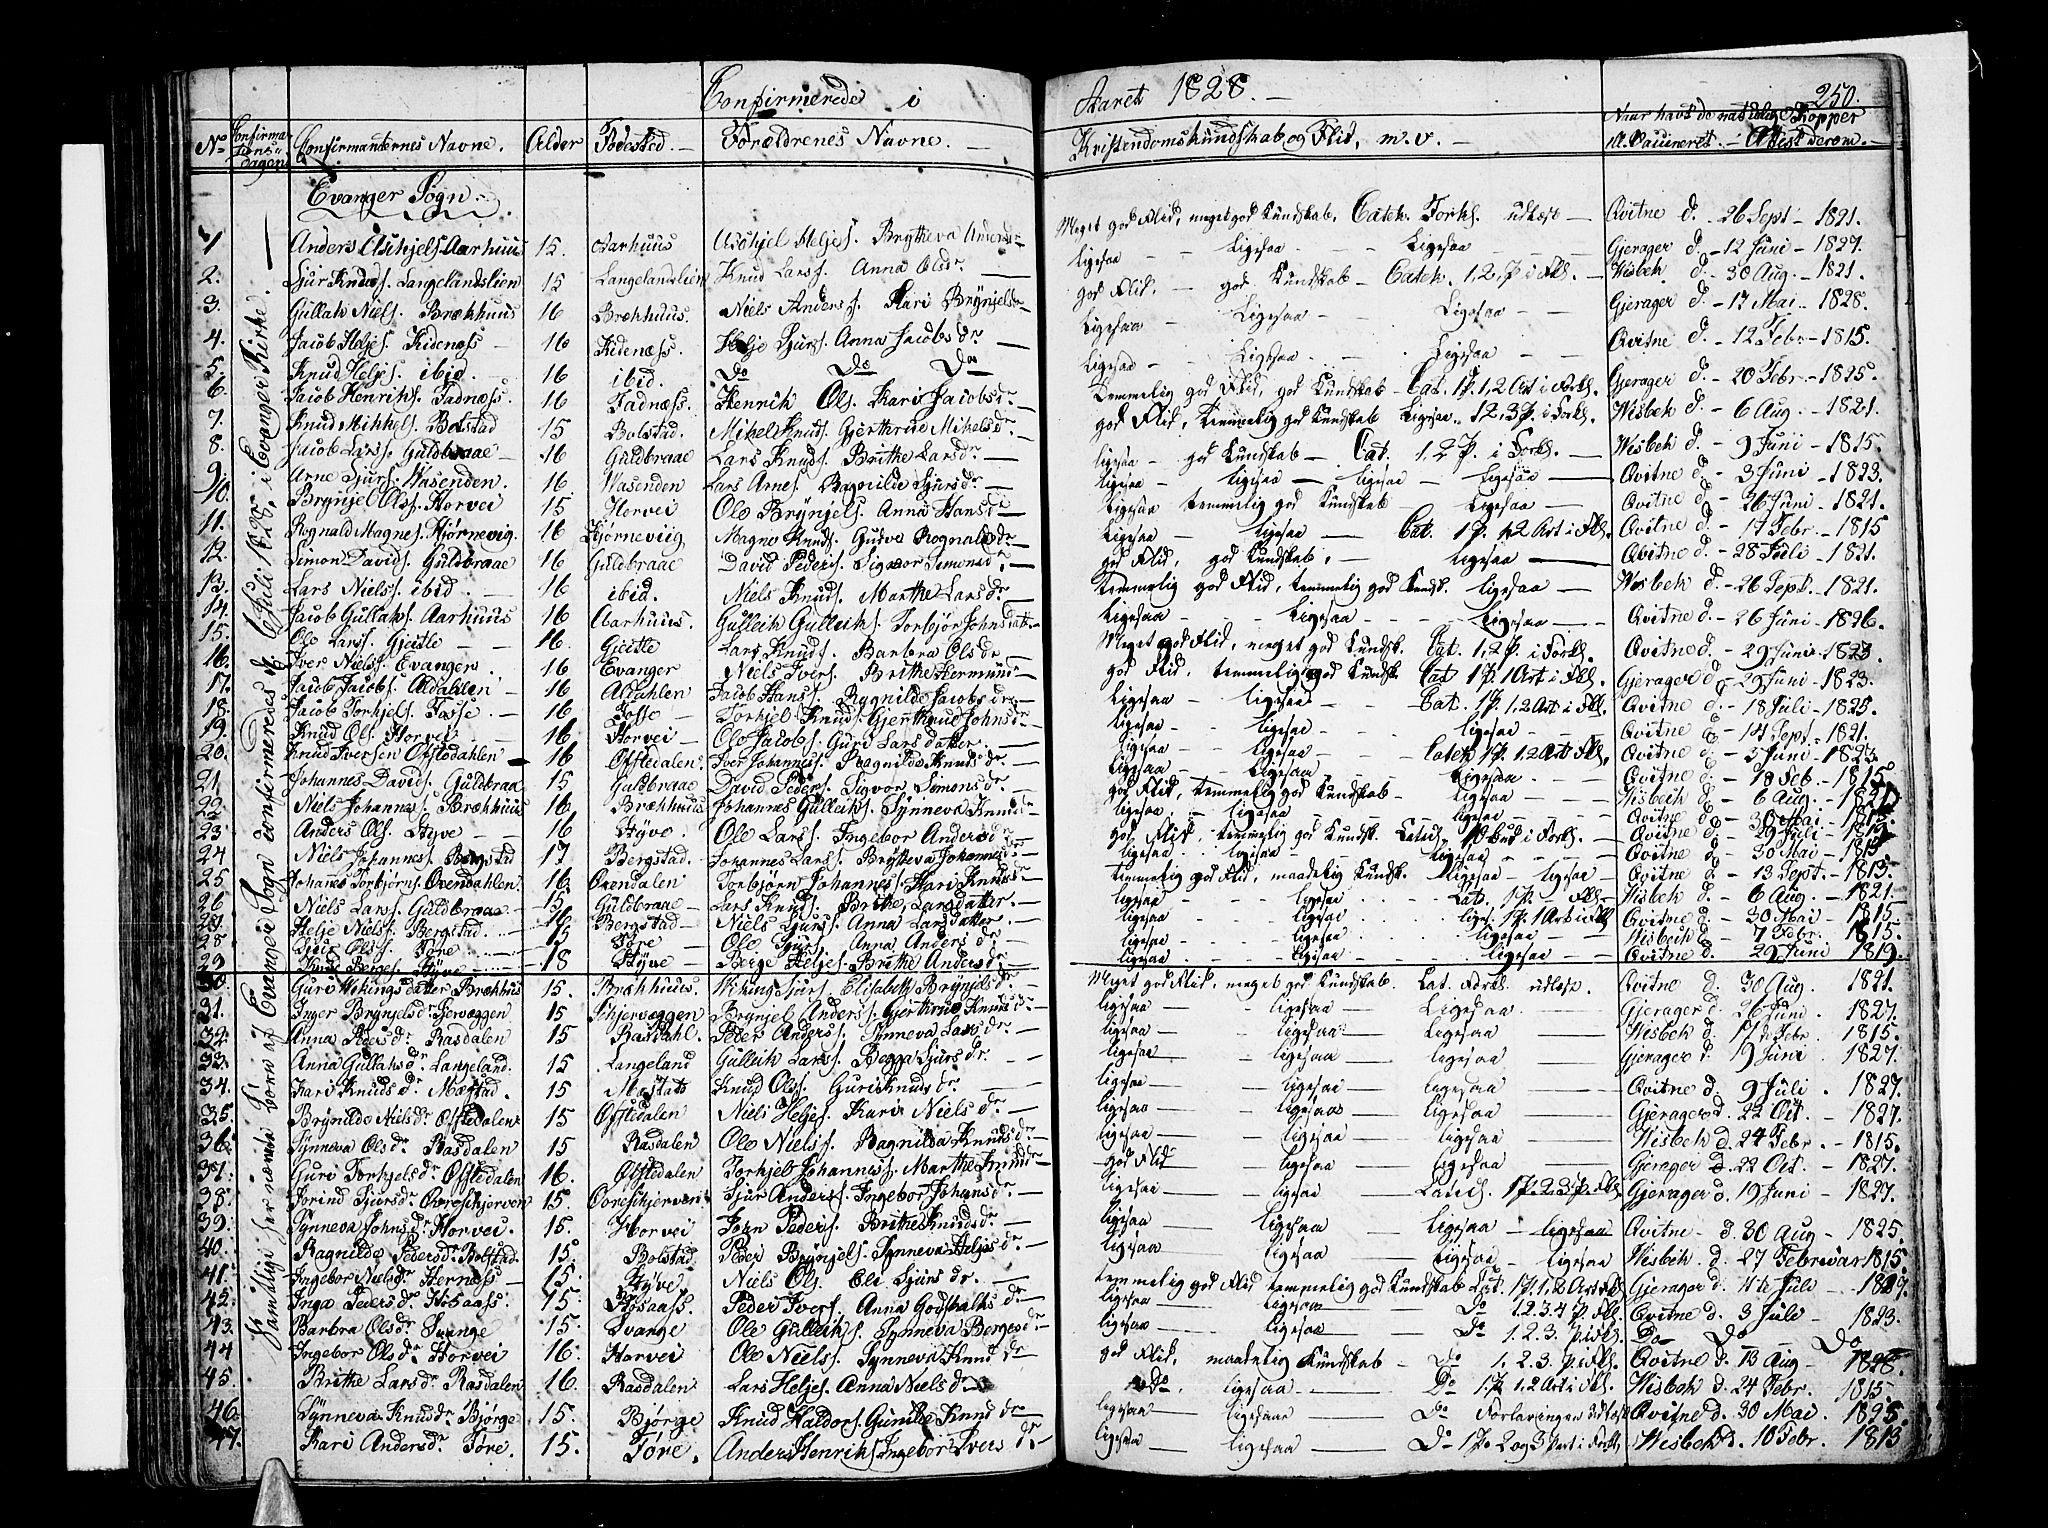 Confirmerede i Aaret 1828. 250.
No Confirmations-dagen Confirmanternes Navne. Alder Fødested. Forældrenes Navne. Kristendomskundskab og Flid, m.v. Naar havt de naturlige Kopper el. Vaccineret. Attest derom.
Evanger Sogn
Samtlige her nævnte Børn af Evanger Sogn confirmeredes d. 6 Juli 1828, i Evanger Kirke.
1 Anders Aschjels. Aarhuus 15. Aarhuus Aschjel Heljes. Brytheva Andersdr Meget god Flid, meget god Kundskab. Catek. Forkl. udlæst Qvitne d. 26 Sept 1821.
2. Sjur Knuds. Langelandslien 15 Langelandslien Knud Larss. Anna Olsdr Ligesaa Ligesaa Gjerager d. 12 Juni 1827.
3. Gullak Niels. Brækhuus 16 Brækhuus. Niels Anderss. Kari Brynjelsdr god Flid, god Kundskab Catek. 1,2. P. i Fkl. Wisbek d. 30 Aug. 1821.
4. Jacob Heljes. Kidenæss 16 Kidenæss. Helje Sjurs. Anna Jacobsdr Ligesaa Ligesaa Ligesaa Gjerager d. 17 Mai 1828.
5. Knud Heljes. ibid. 16 ibid. Do Do Do Ligesaa Ligesaa Ligesaa Qvitne d. 12 Febr 1815.
6. Jacob Henriks. Fadnæss 16 Fadnæss. Henrik Ols. Kari Jacobsdr Temmelig god Flid, god Kundskab Cat. 1 P. 1,2 Art i Forkl. Gjerager d. 20 Febr 1825.
7. Knud Mikkels. Bolstad 15 Bolstad. Mikel Knuds. Gjerthrud Mikelsdr god Flid, temmelig god Kundskab Ligesaa 1 2. 3 P. i Forkl. Wisbek d. 6 Aug. 1821.
8. Jacob Larss. Guldbraae 16 Guldbraae Lars Knuds. Brithe Larsdr ligesaa god Kundskab Cat. 1,2 P. i Forkl. Wisbek d. 9 Juni 1815.
9. Arne Sjurs. Wasenden. 16 Wasenden Lars Arnes. Ragnilda Sjursdr ligesaa ligesaa ligesaa Ligesaa Qvitne d. 3 Juni 1823.
10. Brynjel Olss. Horvei 15 Horvei Ole Brynjels. Anna Hansdr Ligesaa temmelig god Kundskab Ligesaa Qvitne d. 26 Juni 1821.
11. Rognald Magnes. Hjørnevig. 16 Hjørneviig Magne Knuds. Gurve Rognaldsdr Ligesaa ligesaa Cat. 1 P. 1,2 Art i Fkl. Qvitne d. 17 Febr. 1815
12. Simon Davids. Guldbraae 16 Guldbraae David Peders. Sigvor Simonsdr god Flid, god Kundskab, ligesaa Qvitne d. 28 Juli 1821.
13. Lars Nielss. ibid. 16 ibid. Niels Knuds. Marthe Larsdr Temmelig god Flid, temmelig god Kundsk. ligesaa Wisbek d. 26 Sept. 1821.
14. Jacob Gullaks. Aarhuus 16 Aarhuus. Gulleik Gulleiks. Torbjør Johnsdatr Ligesaa Ligesaa Ligesaa Qvitne d. 26 Juni 1826.
15. Ole Larss. Gjestle 16. Gjestle Lars Knuds. Barbra Olsdr Meget god Flid, meget god Kundsk. Cat. 1,2 P. i Forkl. Qvitne d. 29 Juni 1823.
16. Iver Nielss. Evanger. 16 Evanger Niels Ivers. Brithe Hermunds god Flid, temmelig god Kundsk. Cat 1 P. 1 Art i Fkl. Gjerager d. 29 Juni 1823.
17. Jacob Jacobs. Aldahlen 16 Aldahlen Jacob Hans. Rygnilde Jacobsdr. Ligesaa ligesaa Cat. 1 P. 1,2 Art i Fkl. Qvitne d. 18 Juli 1825.
18. Jacob Torkjels. Fosse 16 Fosse Torkjel Knuds. Gjerthrud Johnsdr ligesaa ligesaa ligesaa Qvitne d. 14 Sept. 1821.
19. Knud Ols. Horvei 16 Horvei Ole Jacobs. Guri Larsdatter. ligesaa ligesaa Catek. 1 P. 1,2 Art i Fkl. Qvitne d. 3 Juni 1823
20. Knud Iversen Øfstedahlen 16 Øfstedalen. Iver Johanness. Ragnilda Knudsdr. ligesaa Ligesaa Ligesaa Qvitne d. 18 Feb. 1815
21 Johannes Davids. Guldbraae 15 Guldbraae David Peders. Sigvor Simonsdr. god Flid, temmelig god Kundskab ligesaa Wisbek d. 6 Aug. 1821
22 Niels Johannes. Brækhuus 16. Brækhuus Johannes Gulleiks. Synneva Knudsdr ligesaa ligesaa ligesaa Qvitne d. 30 Mai 1815.
23 Anders Ols. Styve 16 Styve. Ole Larss. Ingebor Andersdr god Flid. temmelig god Kundsk. Qvitne d. 29 Juli 1819
24 Niels Johannes. Bergstad 17 Bergstad. Johannes Larss. Brytteva Johannesdr ligesaa ligesaa ligesaa Qvitne d. 30 Mai 1815
25. Johanes Torbjørns. Øvendahlen. 16. Øvendalen Torbjørn Johannes. Kari Knudsdr temmelig god Flid, maadelig Kundsk. ligesaa ligesaa Qvitne d. 13 Sept. 1815.
26 Niels Larss. Guldbraae 15 Guldbraae Lars Knuds. Brithe Larsdatter. ligesaa ligesaa Cat. 1 P. Fkl. Wisbek d. 6 Aug. 1821
27 Helje Niels. Bergstad. 16 Bergstad Niels Sjurs. Anna Larsdatter. ligesaa ligesaa liges. 1 P. 1 Art i Fkl Qvitne d. 30 Mai 1815
28 Sjur Olss. Føre 15 Føre Ole Sjurs. Anna Andersdr. ligesaa ligesaa ligesaa Wisbek d. 7 Febr. 1815.
29. Knud Berges. Styve 18 Styve Berge Heljes. Brithe Andersdr ligesaa ligesaa ligesaa Qvitne d. 29 Juni 1819.
30. Guri Wikingsdatter Brækhus 15. Brækhuus Wiking Sjurs. Elisabeth Brynjelsdr. Meget god Flid, meget god Kundskab. Cat. Forkl. udlæst. Qvitne d. 30 Aug. 1821.
31. Inger Brynjelsdr Skjervæggen 15 Skjervæggen Brynjel Anders. Gjerthrud Knudsdr ligesaa ligesaa Ligesaa Gjerager d. 26 Juni 1827.
32. Anna Pedersdr. Rasdalen 15 Rasdahl Peder Anderss. Synneva Larsdr ligesaa ligesaa Ligesaa Wisbek d. 17 Febr. 1815.
33. Anna Gullaksdr. Langeland 15 Langeland Gulleik Larss. Begga Sjursdr. ligesaa ligesaa ligesaa Gjerager d. 19 Juni 1827.
34. Kari Knudsdr. Mæstad. 15 Mæstad Knud Olss. Guri Knudsdr ligesaa ligesaa ligesaa Qvitne d. 9 Juli 1827.
35. Brynilda Nielsdr. Øfstedalen 15 Øfstedalen Niels Heljes. Kari Nielsdr. ligesaa ligesaa ligesaa Gjerager d. 22 Oct. 1827.
36. Synneva Olsdr Rasdalen 15 Rasdalen Ole Nielss. Ragnilda Knudsdr. ligesaa ligesaa ligesaa Wisbek d. 24 Febr. 1815.
37. Guri Torkjelsdr. Øfstedalen 16. Øfstedalen Torkjel Johanness. Marthe Knudsdr god Flid ligesaa ligesaa Gjerager d. 22 Oct. 1827.
38. Jorind Sjursdr. Øvreskjerven 15. Øvreskjerven Sjur Anderss. Ingebor Johansdr. ligesaa ligesaa Catech. 1 P. 2. 3. P. Fkl. Gjerager d. 19 Juni 1827.
39. Synneva Johnsdr. Horvei. 15. Horvei John Peders. Brithe Knudsdr. ligesaa ligesaa ligesaa ligesaa Qvitne d. 30 Aug 1825.
40. Ragnilda Pedersdr. Bolstad. 15 Bolstad Peder Brynjels. Synneva Heljesdr. ligesaa ligesaa ligesaa ligesaa Wisbek d. 27 Februar 1815.
41. Ingebor Nielsdr. Hernæss 15. Styve Niels Ols. Eli Sjursdr. temmelig god Flid temmelig god Kundskab Cat. 1 P. 1,2 Art i Fkl Gjerager d. 4de Juli 1827.
42. Inga Pedersdr. Høsaass. 15. Høsaass. Peder Ivers. Anna Godskalksdr ligesaa ligesaa Do 1.2.3.4 P. Fkl. Qvitne d. 3 Juli 1823.
43. Barbra Olsdr Evange 15. Evange Ole Gulleiks. Synneva Bergesdr ligesaa ligesaa Do 1. 2. 3. P. i Fkl. Do Do Do
44 Ingebor Olsdr. Horvei 16. Horvei Ole Nielss. Synneva Knudsdr god Flid, maadelig Kundskab Do 1. 2. 3. P. i Fkl. Qvitne d. 13 Aug 1828.
45. Brithe Larsdr. Rasdalen 16. Rasdalen Lars Heljes. Anna Nielsdr Do. ligesaa Do 1 P. 1,2 Art i Fkl. Wisbek d. 24 Febr. 1815.
46. Synneva Knudsdr. Bjørge 15. Bjørge Knud Haldors. Gunilda Knudsdr ligesaa ligesaa Do Forklaringen udlæst Qvitne d. 30 Mai. 1825.
47. Kari Andersdr. Føre 15. Føre. Anders Henriks. Ingebor Iversdr. ligesaa ligesaa Do 1 P. 2 og 3 Part i Forkl. Wisbek d. 10 Febr. 1813